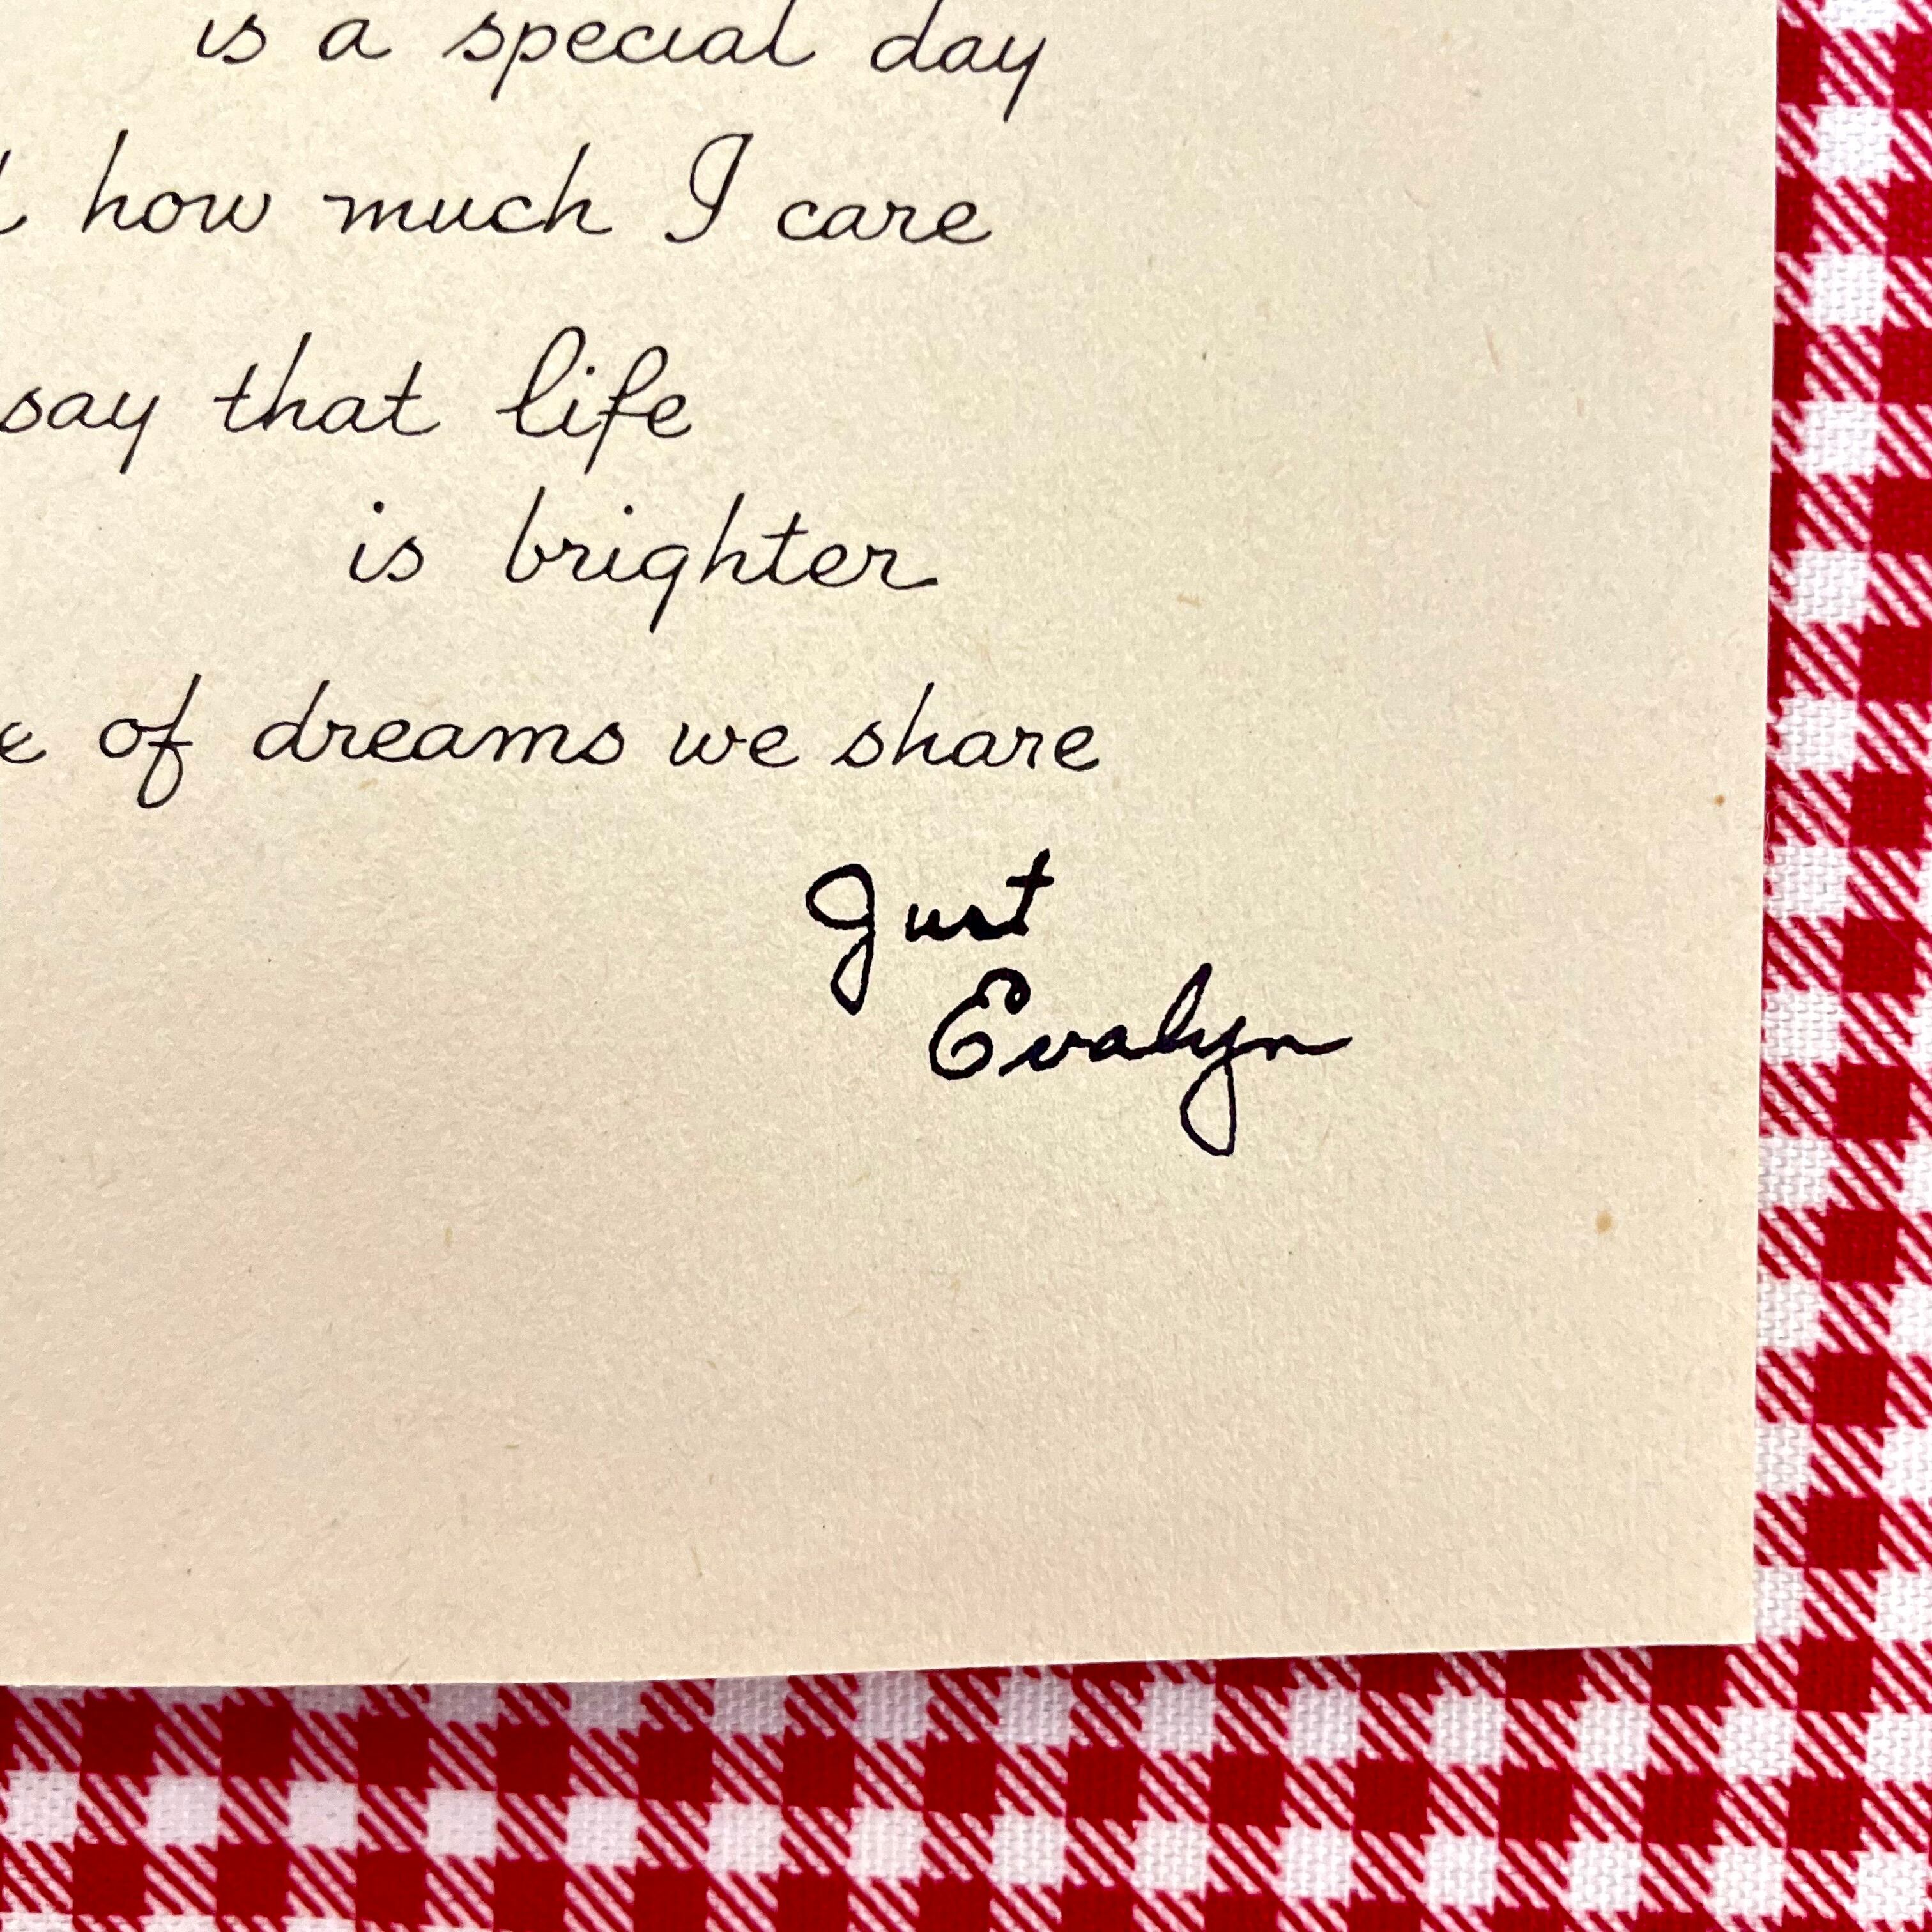 is a special day
how much I care
say that life
is brighter
of dreams we share
Just
Evalyn